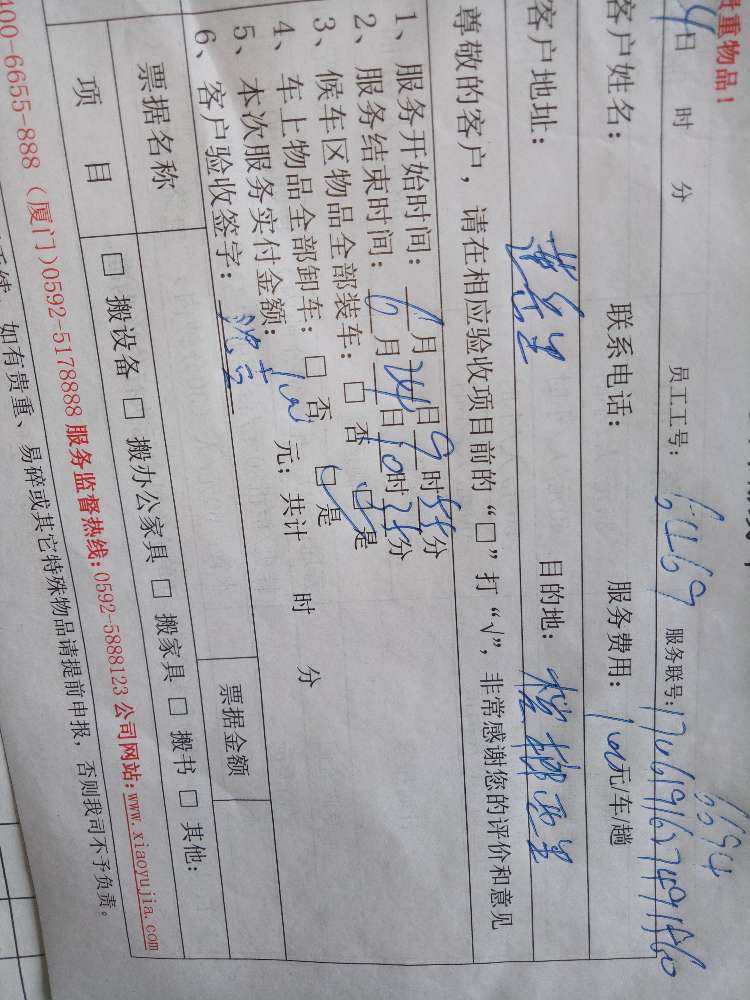 贵重物品！
4日 时 分 员工工号: 6469 服务联号:
客户姓名: 联系电话: 服务费用: 元/车/趟
客户地址: 目的地: 槟榔西里
尊敬的客户，请在相应验收项目前的“□”打“√”，非常感谢您的评价和意见
1、服务开始时间: 6月24日9时55分
2、服务结束时间: 6月24日10时25分
3、候车区物品全部装车: □ 否 □ 是
4、车上物品全部卸车: □ 否 □ 是
5、本次服务实付金额: 元; 共计 时 分
6、客户验收签字:
票据名称 票据金额
项 目 □ 搬设备 □ 搬办公家具 □ 搬家具 □ 搬书 □ 其他:
400-6655-888（厦门)0592-5178888 服务监督热线:0592-5888123 公司网站:www.xiaoyujia.com
如有贵重、易碎或其它特殊物品请提前申报，否则我司不予负责。